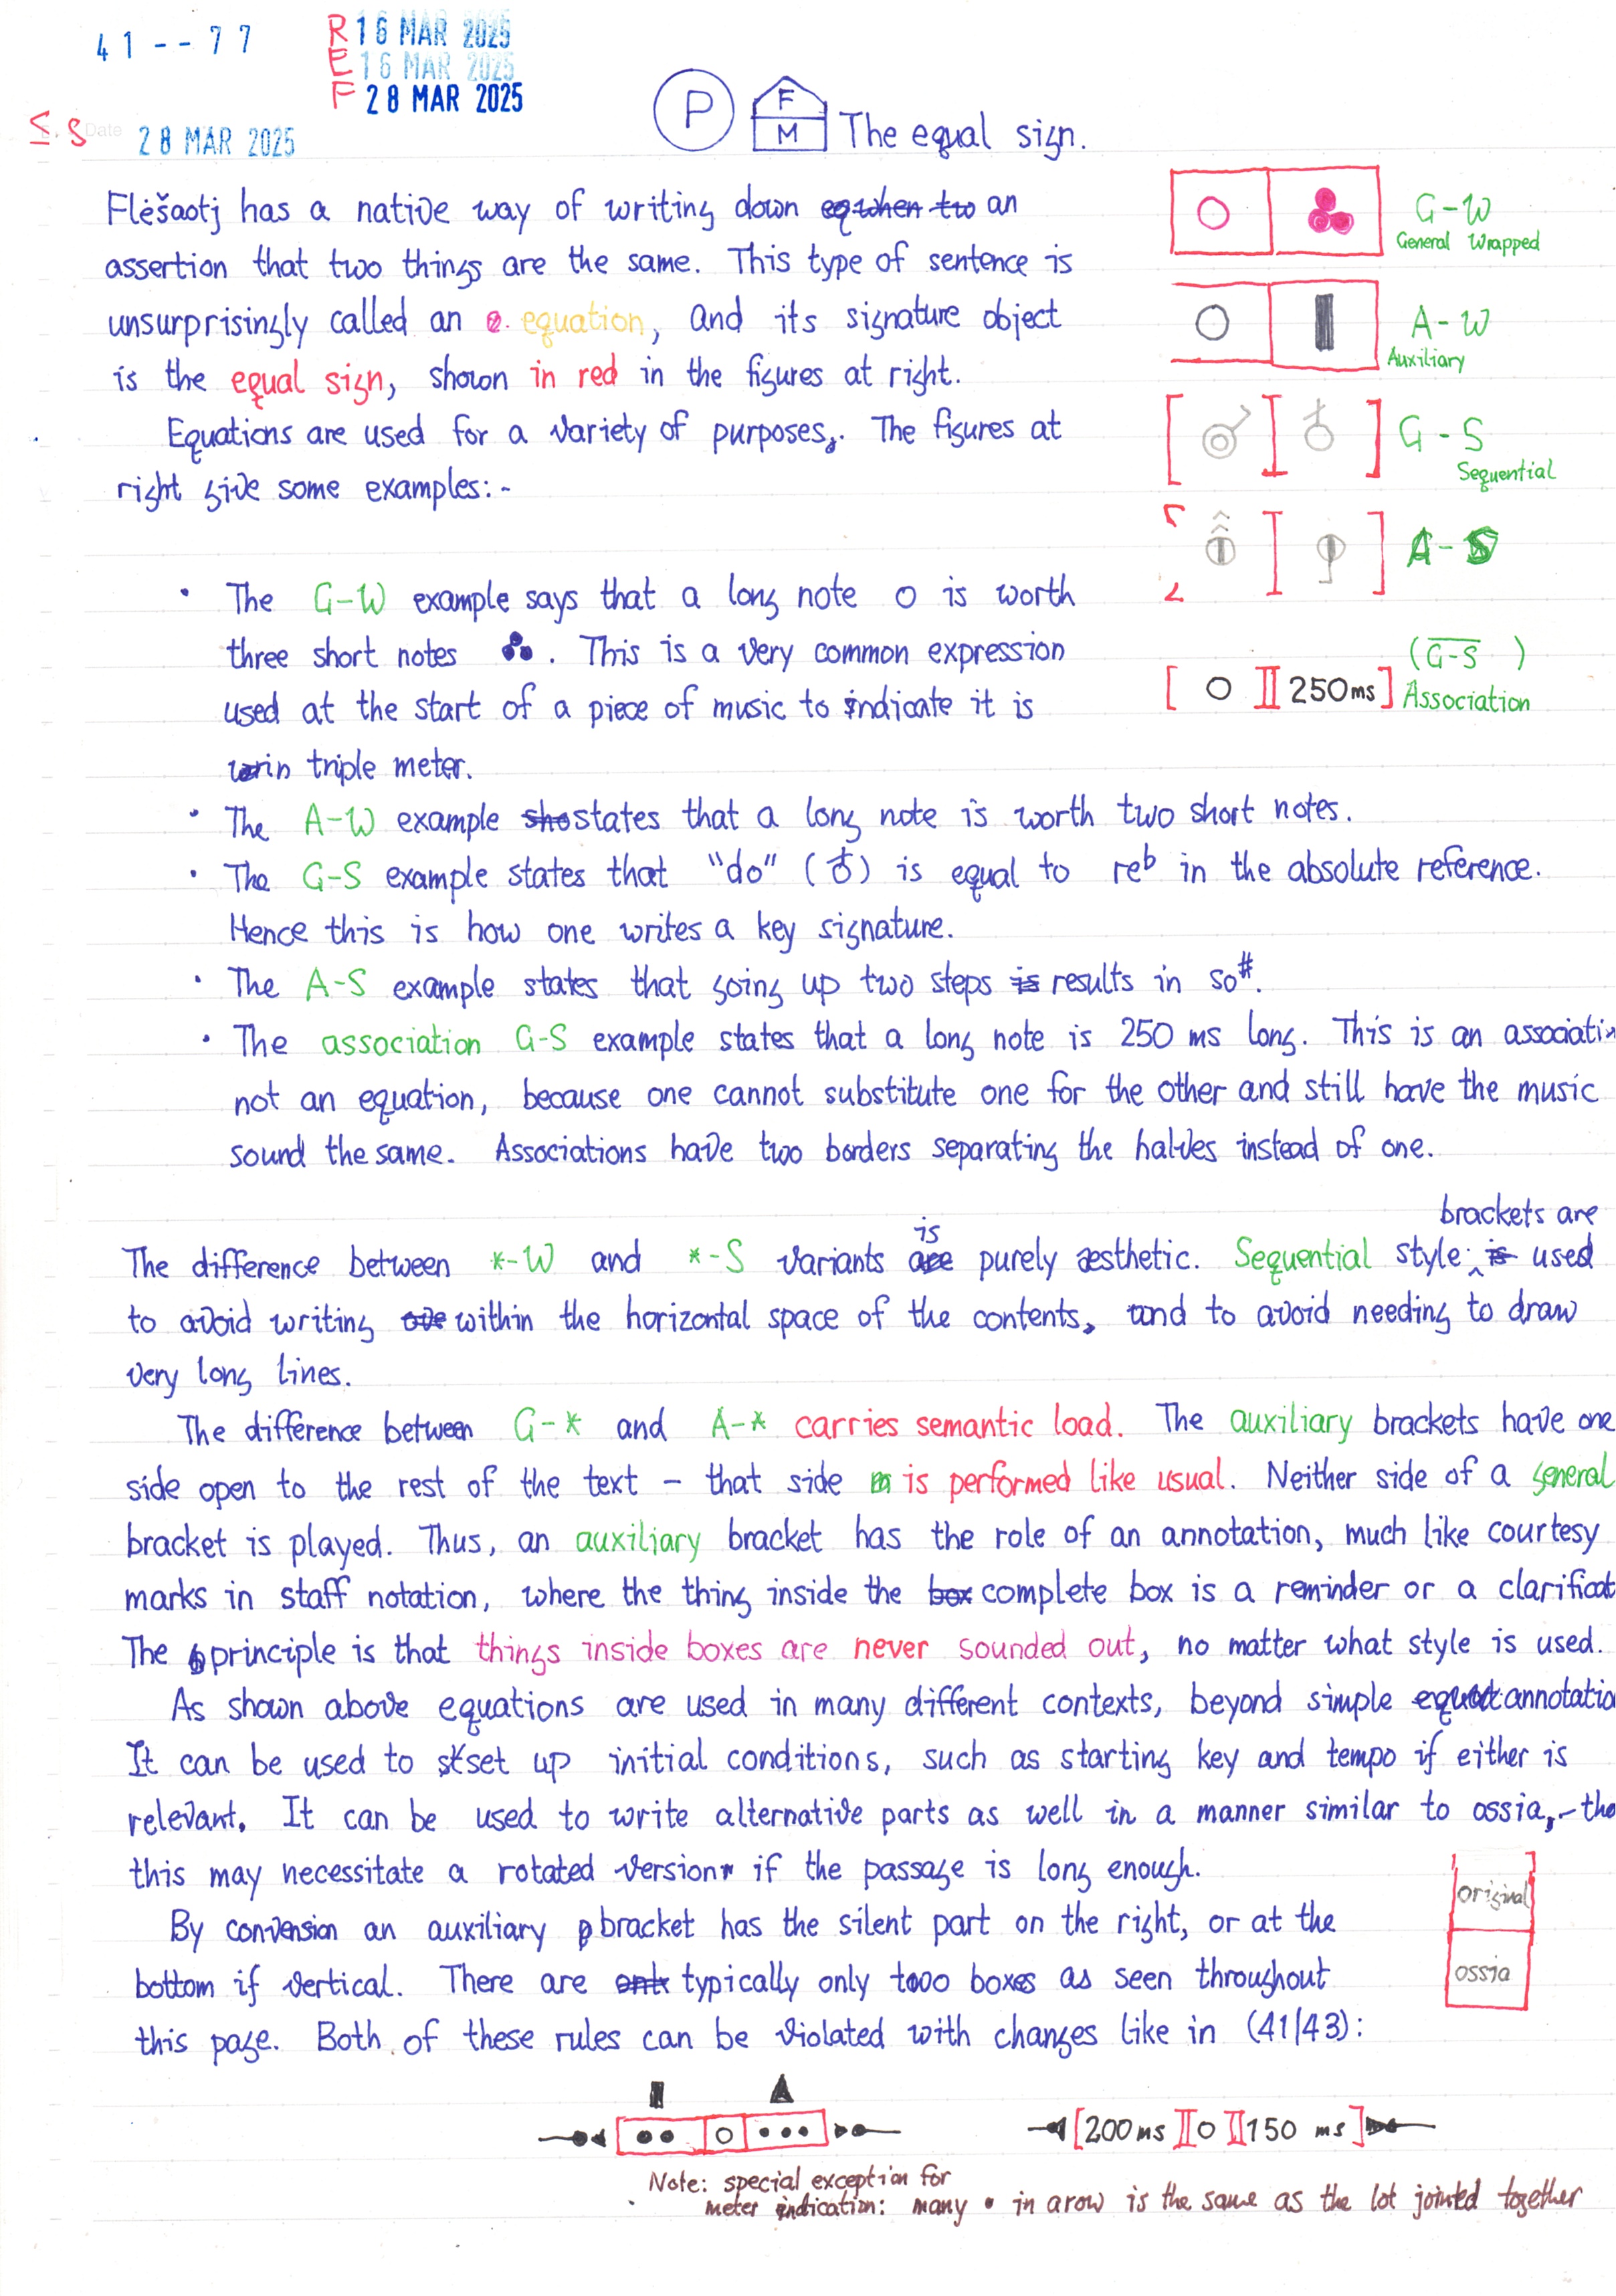 41--77
R 16 MAR 2025
E 16 MAR 2025
F 28 MAR 2025
S.S Date 28 MAR 2025
P F M The equal sign.
Flėšaotj has a native way of writing down eq when two an
assertion that two things are the same. This type of sentence is
unsurprisingly called an e. equation, and its signature object
is the equal sign, shown in red in the figures at right.
Equations are used for a variety of purposes. The figures at
right give some examples:-
G-W
General Wrapped
A-W
Auxiliary
G-S
Sequential
A-S
(G-S)
[ O ][ 250ms] Association
• The G-W example says that a long note O is worth
three short notes. This is a very common expression
used at the start of a piece of music to indicate it is
in triple meter.
• The A-W example sho states that a long note is worth two short notes.
• The G-S example states that "do" (♁) is equal to reb in the absolute reference.
Hence this is how one writes a key signature.
• The A-S example states that going up two steps is results in so#.
• The association G-S example states that a long note is 250 ms long. This is an associatin
not an equation, because one cannot substitute one for the other and still have the music
sound the same. Associations have two borders separating the halves instead of one.
brackets are
is
The difference between *-W and *-S variants are purely æsthetic. Sequential style is used
to avoid writing ove within the horizontal space of the contents, and to avoid needing to draw
very long lines.
The difference between G-* and A-* carries semantic load. The auxiliary brackets have one
side open to the rest of the text – that side is performed like usual. Neither side of a general
bracket is played. Thus, an auxiliary bracket has the role of an annotation, much like courtesy
marks in staff notation, where the thing inside the box complete box is a reminder or a clarificat
The principle is that things inside boxes are never sounded out, no matter what style is used.
As shown above equations are used in many different contexts, beyond simple equat annotatio
It can be used to st set up initial conditions, such as starting key and tempo if either is
relevant. It can be used to write alternative parts as well in a manner similar to ossia, - tho
this may necessitate a rotated version if the passage is long enough.
original
ossia
By convension an auxiliary bracket has the silent part on the right, or at the
bottom if vertical. There are only typically only two boxes as seen throughout
this page. Both of these rules can be violated with changes like in (41/43):
[200ms ][ O ][ 150 ms]
Note: special exception for
meter indication: many • in a row is the same as the lot jointed together